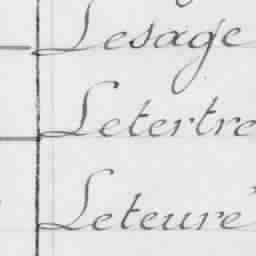 Lesage
Letertre
Leteuré